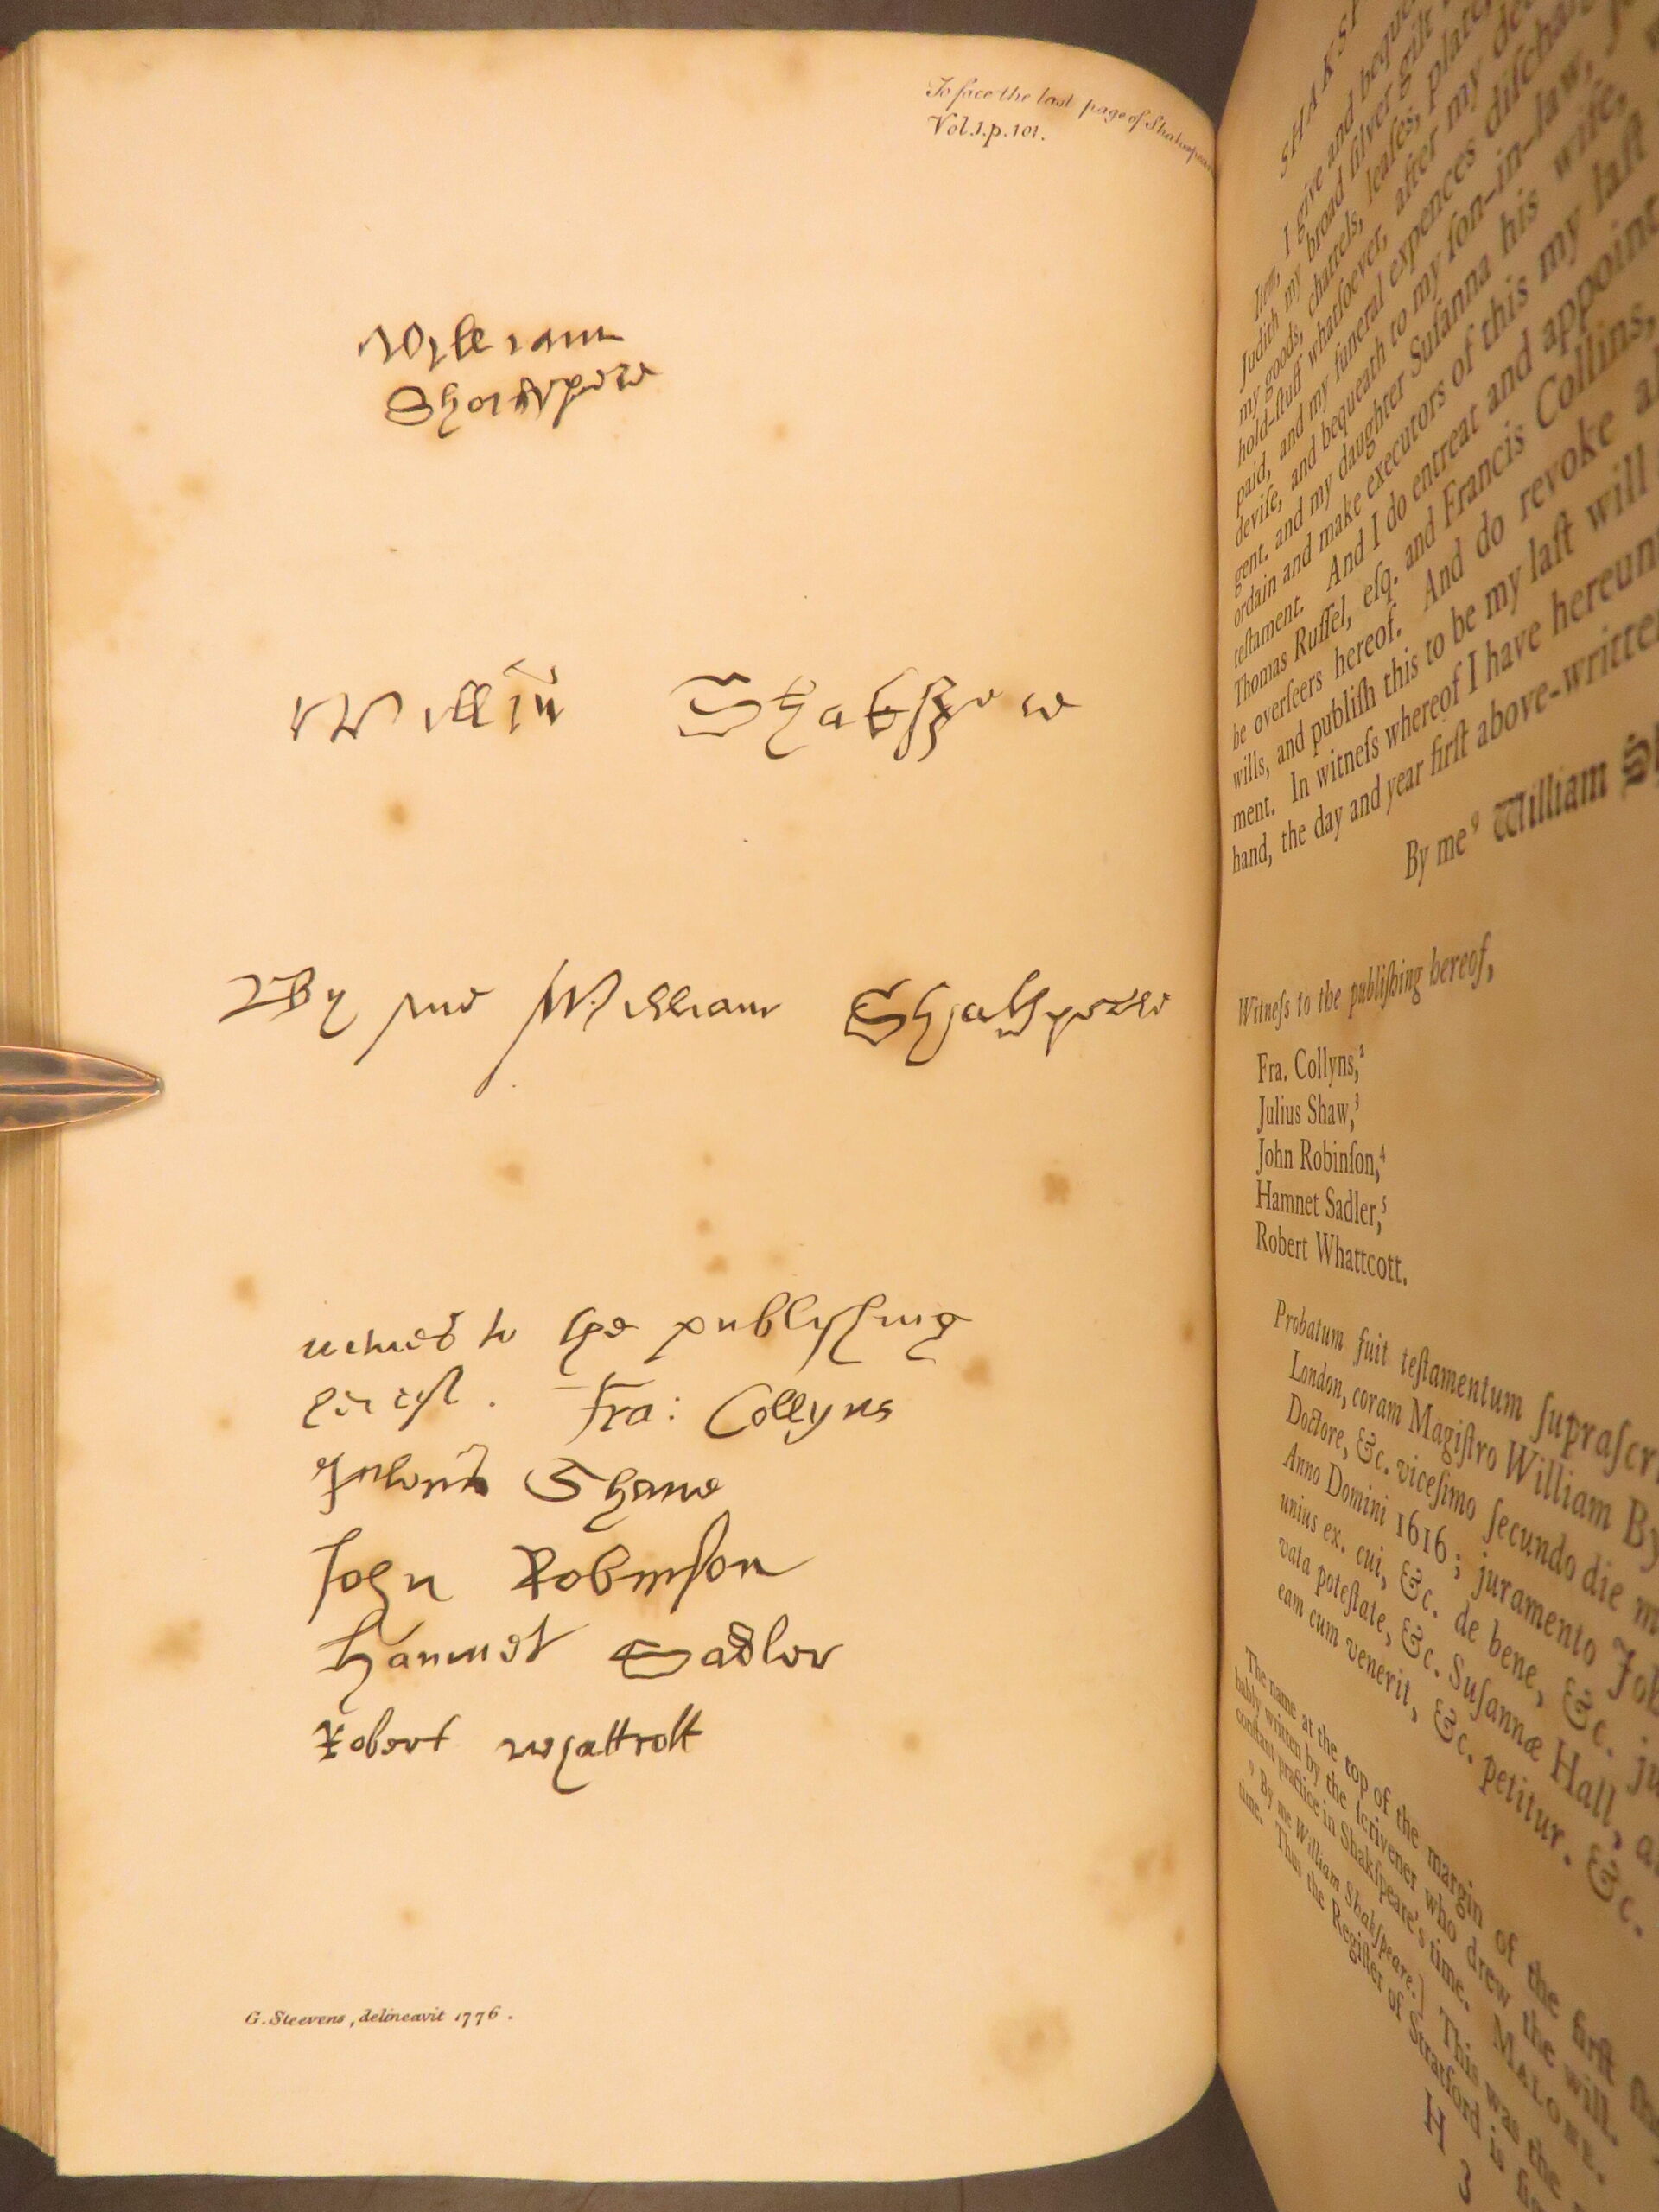 To face the last page of Shakspear
Vol.1.p.101.
William
Shakspere
Willm Shakspere
By me William Shakspeare
witnes to the publyshing
hereof. Fra: Collyns
Julius Shawe
John Robinson
Hamnet Sadler
Robert Whattcott
G. Steevens, delineavit 1776.
SHAKSP
Item, I give and beque
Judith my broad ſilver gilt
my goods, chattels, leaſes, plate,
hold-ſtuff whatſoever, after my de
paid, and my funeral expences diſchar
deviſe, and bequeath to my ſon-in-law,
gent. and my daughter Suſanna his wife,
ordain and make executors of this my laſt
teſtament. And I do entreat and appoint
Thomas Ruſſel, eſq. and Francis Collins,
be overſeers hereof. And do revoke al
wills, and publiſh this to be my laſt will
ment. In witneſs whereof I have hereun
hand, the day and year firſt above-written
By me⁹ William Sh
Witneſs to the publiſhing hereof,
Fra. Collyns,²
Julius Shaw,³
John Robinſon,⁴
Hamnet Sadler,⁵
Robert Whattcott.
Probatum fuit teſtamentum ſupraſcri
London, coram Magiſtro William By
Doctore, &c. viceſimo ſecundo die m
Anno Domini 1616; juramento Joh
unius ex. cui, &c. de bene, &c. ju
vata poteſtate, &c. Suſannæ Hall, a
eam cum venerit, &c. petitur. &c.
The name at the top of the margin of the firſt
bably written by the ſcrivener who drew the will.
conſtant practice in Shakſpeare's time. MALONE.
⁹ By me William Shakſpeare.] This was the
time. Thus the Regiſter of Stratford is
H 3